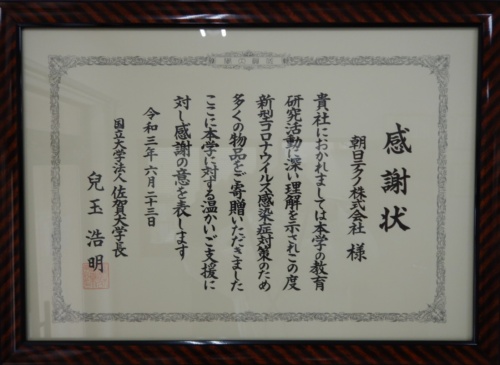 感謝状
朝日テクノ株式会社 様
貴社におかれましては本学の教育
研究活動に深い理解を示されこの度
新型コロナウイルス感染症対策のため
多くの物品をご寄贈いただきました
ここに本学に対する温かいご支援に
対し感謝の意を表します
令和三年六月二十三日
国立大学法人佐賀大学長
兒玉浩明